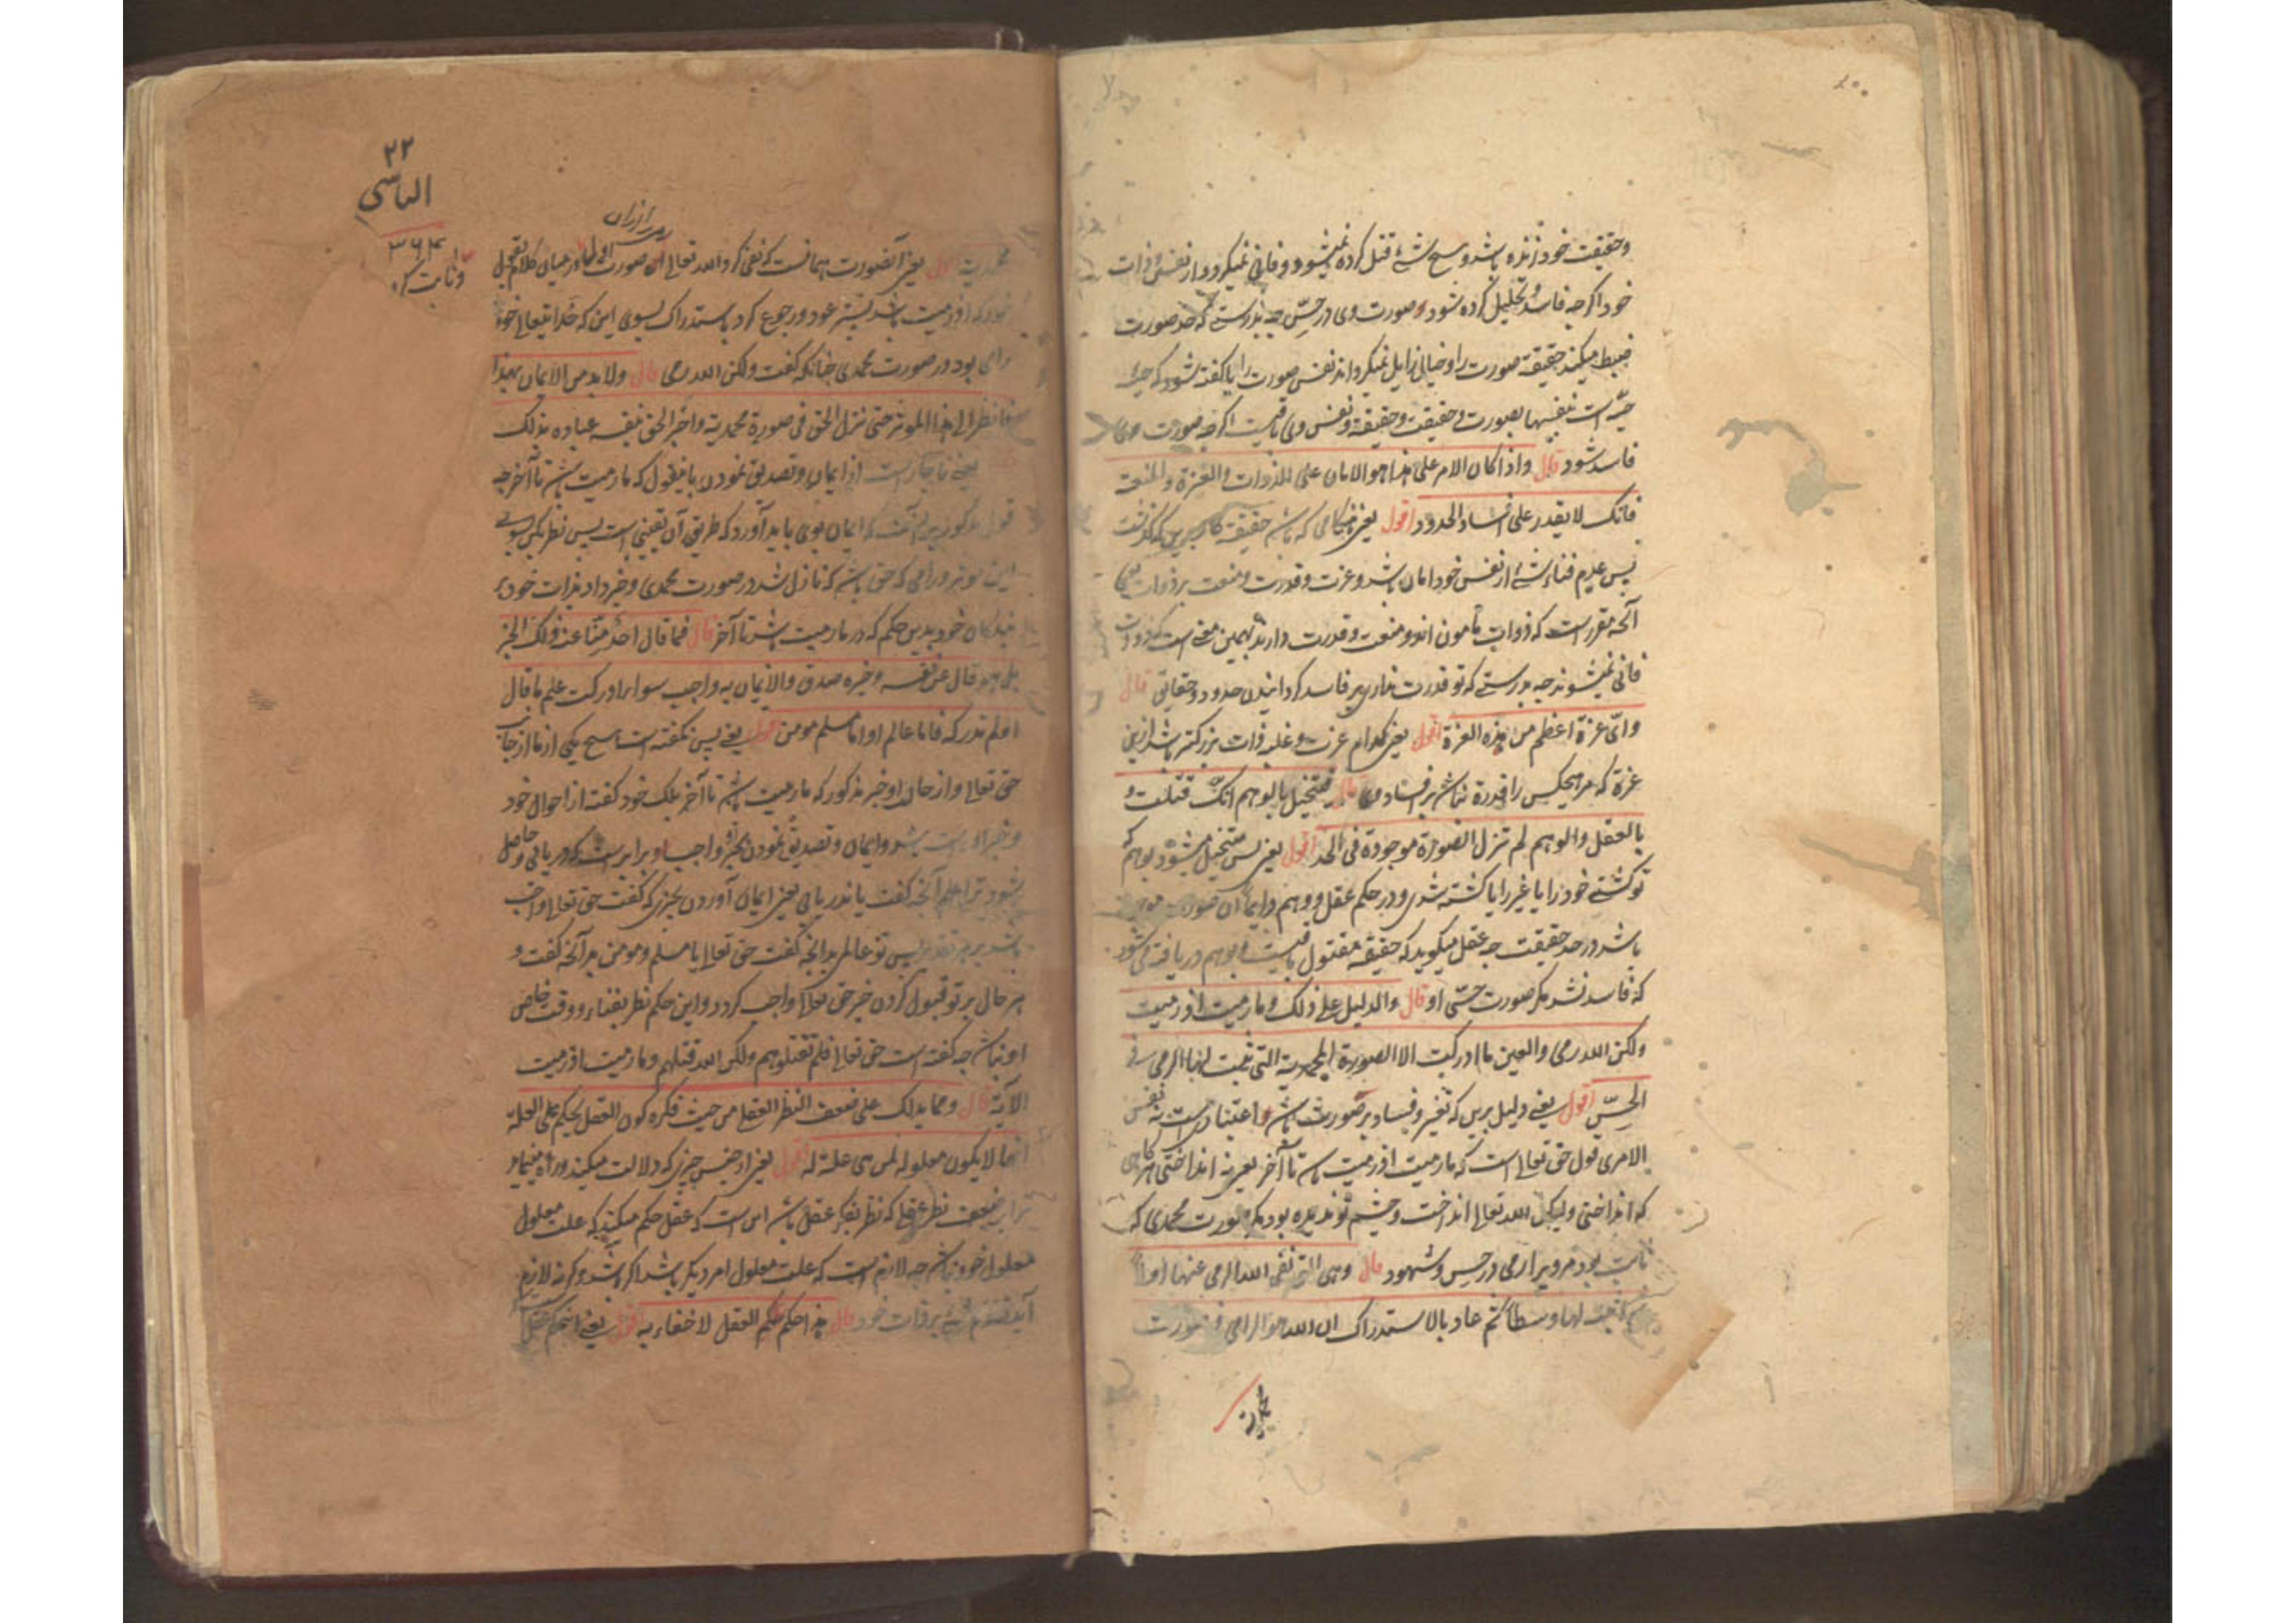 وحقیقت خود زنده باشد و هیچ شئ قتل کرده نمیشود و فانی نمیگردد از نفس و ذات
خود اگرچه فاسد و تحلیل کرده شود صورت وی در حس چه بدرستی که حد صورت
ضبط میکند حقیقة صورت را و خیال زایل نمیگرداند نفس صورت را یا گفته شود که
حیه است بنفسها بصورت و حقیقت وحقیقة و نفس وی باقیست اگرچه صورت
فاسد شود قال واذا کان الامر علی هذا هو الامان علی الذوات والعزة والمنعة
فانک لا یقدر علی افساد الحدود اقول یعنی هنگامی که باشد حقیقة کار برین که گذشت
پس عدم فناء شئ از نفس خود امان باشد و عزت و قدرت و منعت بر ذوات
آنچه مقرر است که ذوات مأمون اند و منعت و قدرت دارند بهمین معنی است که ذوات
فانی نمیشوند چه بدرستی که تو قدرت نداری بر فاسد گردانیدن حدود و حقایق قال
وای عزة اعظم من هذه العزة اقول یعنی کدام عزت و غلبه ذات بزرگتر باشد ازین
عزة که مر هیچکس را قدرة نباشد بر افساد وی قال فتتخیل بالوهم انک قتلت و
بالعقل والوهم لم تزل الصورة موجودة فی الحد اقول یعنی پس متخیل میشود بوهم که
تو کشتی خود را یا غیر را یا کشته شدی و در حکم عقل و وهم دایما آن صورت موجود
باشد در حد حقیقت چه عقل میگوید که حقیقة مقتول باقیست و بوهم دریافته می شود
که فاسد نشد مگر صورت حسی او قال والدلیل علی ذلک وما رمیت اذ رمیت
ولکن الله رمی والعین ما ادرکت الا الصورة المحمدیة التی ثبت لها الرمی فی
الحس اقول یعنی دلیل برین که تغیر و فساد بر صورت باشد و اعتباری است نه نفس
الامری قول حق تعالی است که ما رمیت اذ رمیت تا آخر یعنی نه انداختی هرگاهی
که انداختی ولیکن الله تعالی انداخت و چشم تو ندیده بود مگر صورت محمدی که
ثابت بود مرویرا رمی در حس و شهود قال وهی التی نفی الله الرمی عنها اولا
ثم اثبته لها وسطا ثم عاد بالاستدراک ان الله هو الرامی فی صورت
محمدیة
۲۲
الیاسی
۳۶۴
وثابت کرد
محمدیة اقول یعنی آنصورت همانست که نفی کرد الله تعالی از صورت
خود که اذ رمیت باشد پستر عود و رجوع کرد باستدراک بسوی این که خدایتعالی خود
رامی بود در صورت محمدی چنانکه گفت ولکن الله رمی قال ولابد من الایمان بهذا
فانظر الی هذا المؤثر حتی نزل الحق فی صورة محمدیة واخبر الحق نفسه عباده بذلک
یعنی ناچار است از ایمان و تصدیق نمودن باینقول که ما رمیت باشد تا آخر چه
قول مذکور ایمان بوی باید آورد که طریق آن یقینی است پس نظر بکن بسوی
این مؤثر و رامی که حق باشد که نازل شد در صورت محمدی و خبر داد بذات خود
بندگان خود بدین حکم که در ما رمیت باشد تا آخر قال فما قال احد منا عنه ذلک الخبر
بل هو قال عن نفسه وخبره صدق والایمان به واجب سواء ادرکت علم ما قال
او لم تدرکه فاما عالم او اما مسلم مومن اقول یعنی پس نگفته است هیچ یکی از ما از جانب
حق تعالی و از حال او خبر مذکور که ما رمیت باشد تا آخر بلکه خود گفت از احوال خود
و خبر او راست باشد و ایمان و تصدیق نمودن بخبر او واجب و برابر است که دریابی و حاصل
شود ترا علم آنچه گفت یا ندریابی یعنی ایمان آوردن بچیزی که گفت حق تعالی واجب
باشد بر هر تقدیر پس تو عالمی بدآنچه گفت حق تعالی یا مسلم و مومن بدآنچه گفت و
بهر حال بر تو قبول کردن خبر حق تعالی واجب گردد و این حکم نظر بفنا و وقت خاص
او نباشد چه گفته است حق تعالی فلم تقتلوهم ولکن الله قتلهم وما رمیت اذ رمیت
الآیة قال ومما یدلک علی ضعف النظر العقلی من حیث فکره کون العقل یحکم علی العلة
انها لا یکون معلولة لمن هی علة له اقول یعنی از جنس چیزی که دلالت میکند و راه مینماید
ترا بر ضعف نظر عقلی که نظر بفکر عقل باشد این است که عقل حکم میکند که علت معلول
معلول خود نباشد چه لازم است که علت معلول امر دیگر باشد اگر باشد وگرنه لازم
آید تقدم شئ بر ذات خود قال هذا حکم العقل لا خفاء به اقول یعنی این حکم عقل